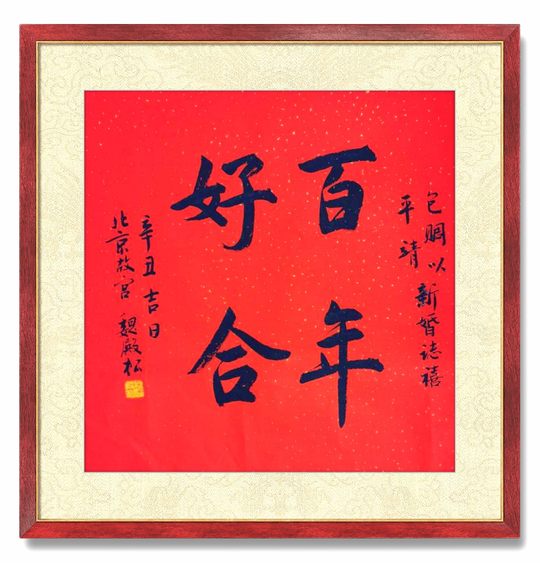 新婚誌禧
平靖
百年
好合
辛丑吉日
北京故宫 魏殿松